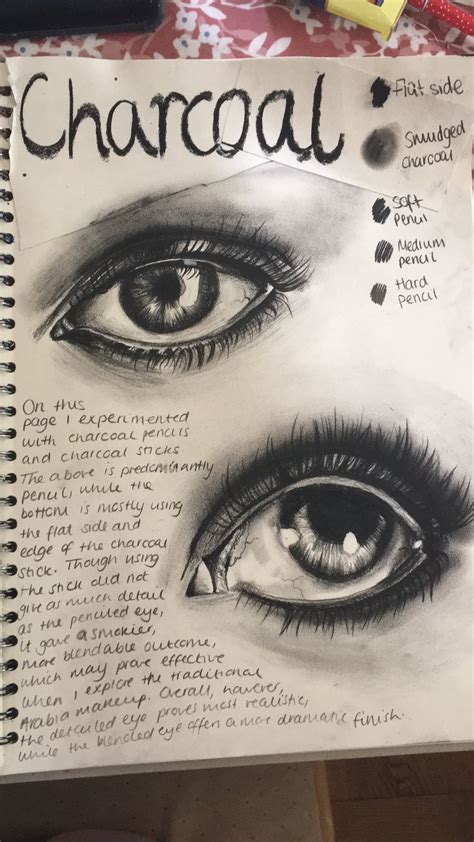 Charcoal
Flat side
Smudged
charcoal
Soft
pencil
Medium
pencil
Hard
pencil
On this
page I experimented
with charcoal pencils
and charcoal sticks.
The above is predominantly
pencil, while the
bottom is mostly using
the flat side and
edge of the charcoal
stick. Though using
the stick did not
give as much detail
as the penciled eye,
it gave a smokier,
more blendable outcome,
which may prove effective
when I explore the traditional
Arabia makeup. Overall, however,
the detailed eye proves most realistic,
while the blended eye offers a more dramatic finish.